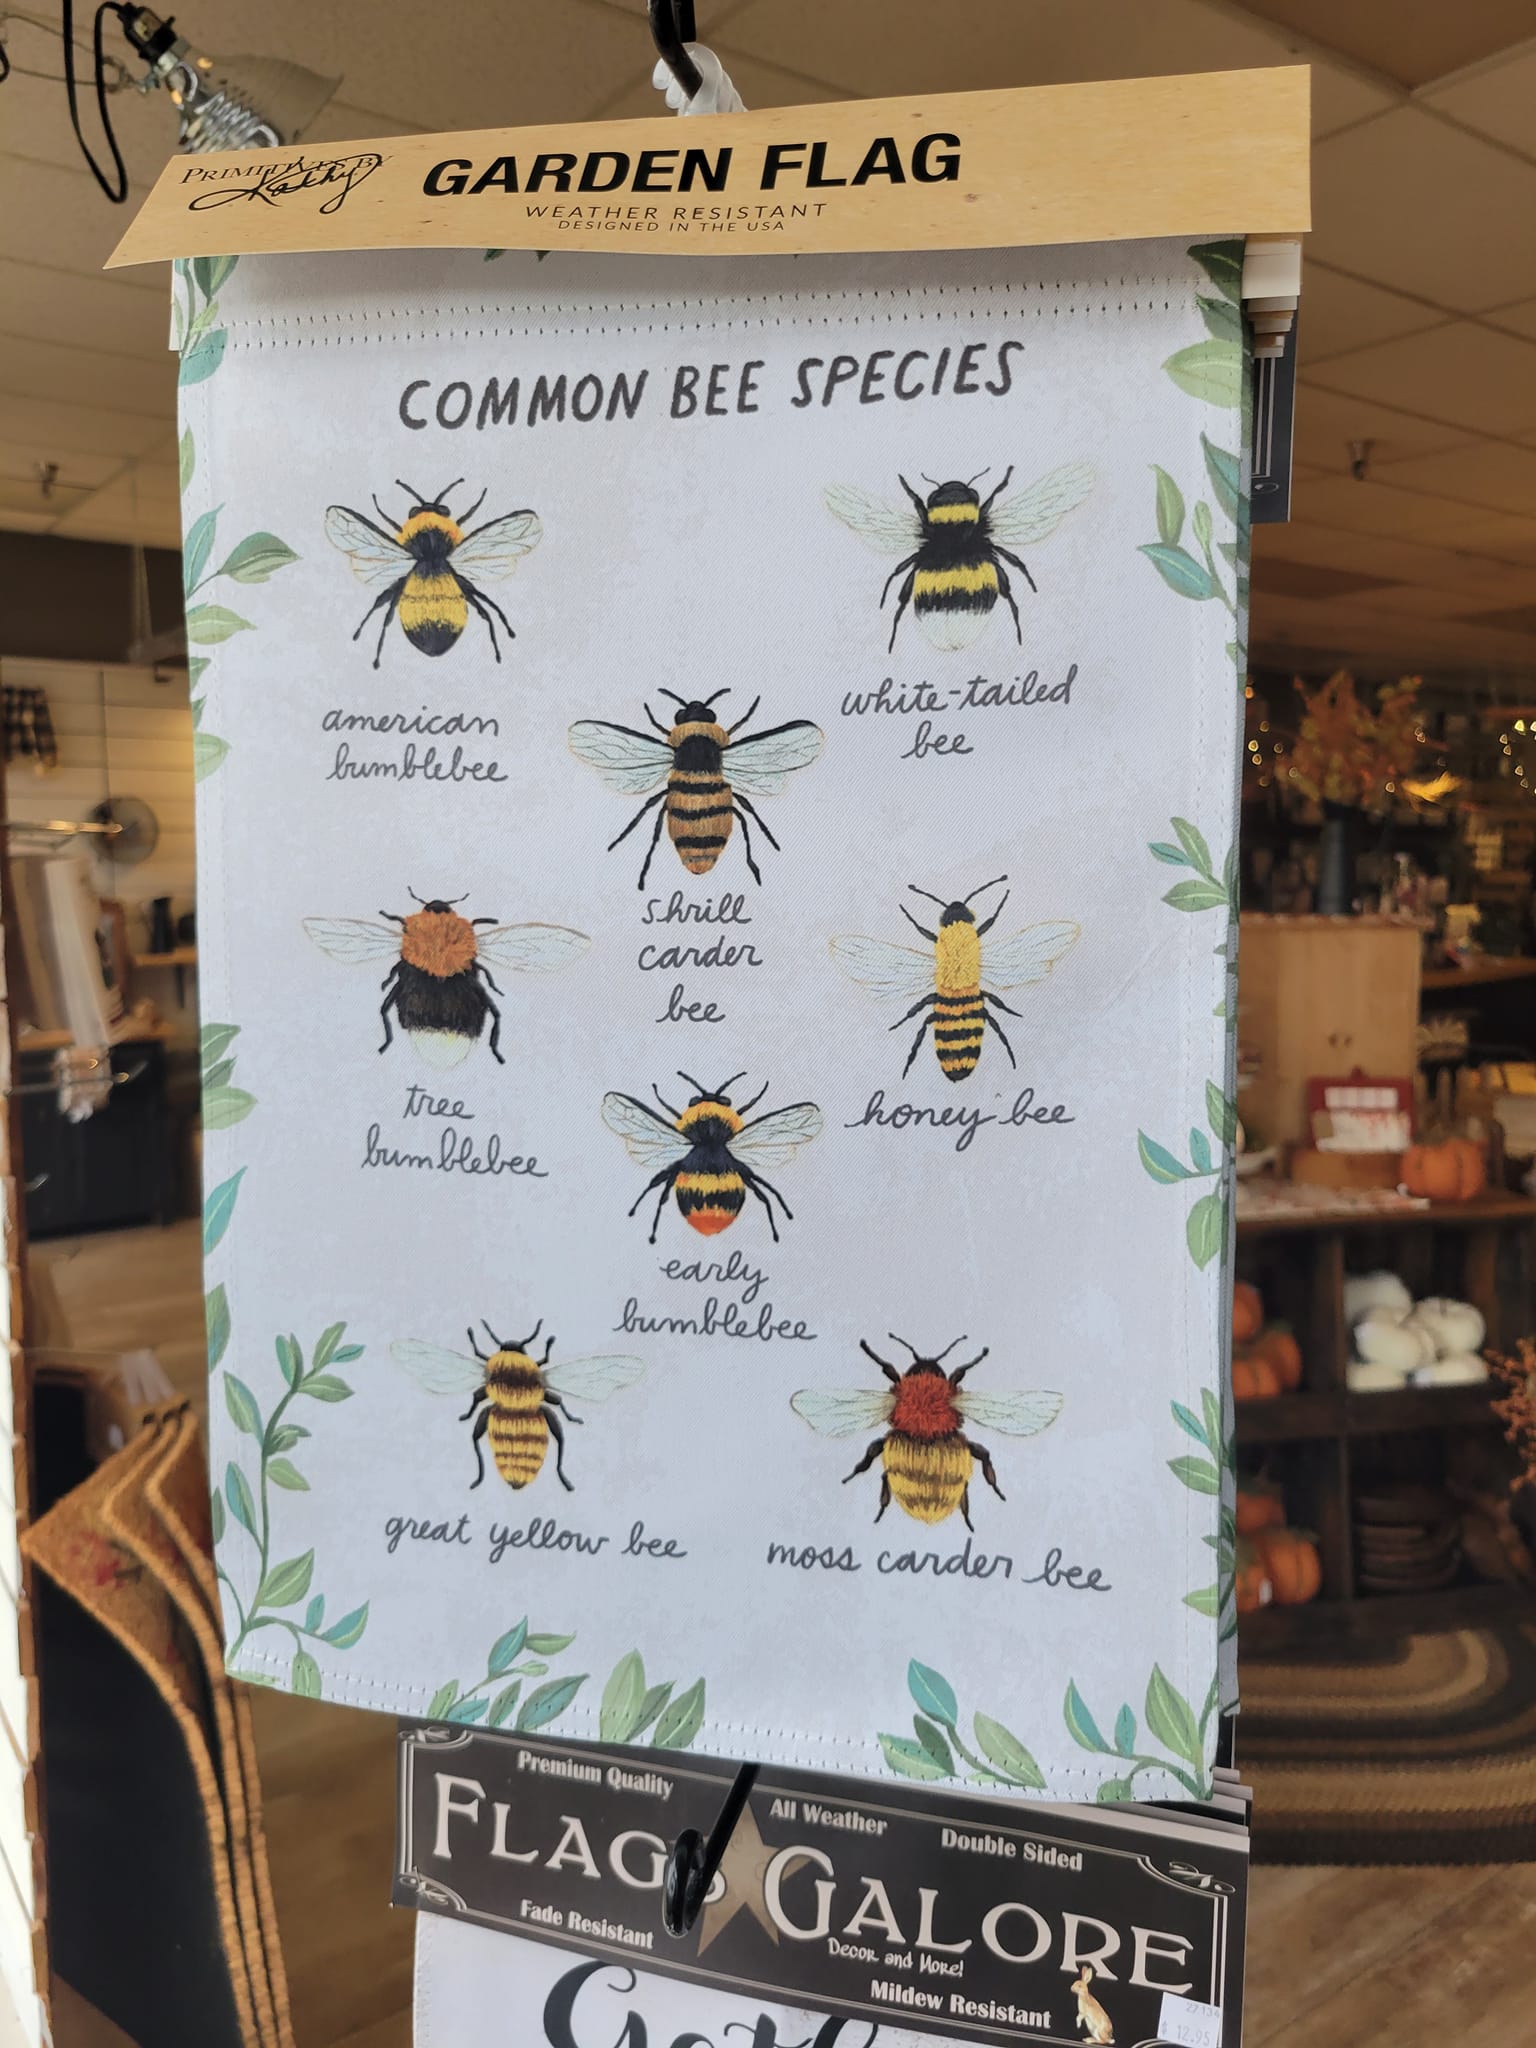 PRIMITIVES BY
Kathy
GARDEN FLAG
WEATHER RESISTANT
DESIGNED IN THE USA
COMMON BEE SPECIES
american
bumblebee
white-tailed
bee
shrill
carder
bee
tree
bumblebee
honey bee
early
bumblebee
great yellow bee
moss carder bee
Premium Quality
All Weather
Double Sided
FLAGS GALORE
Decor and More!
Fade Resistant
Mildew Resistant
27134
$ 12.95